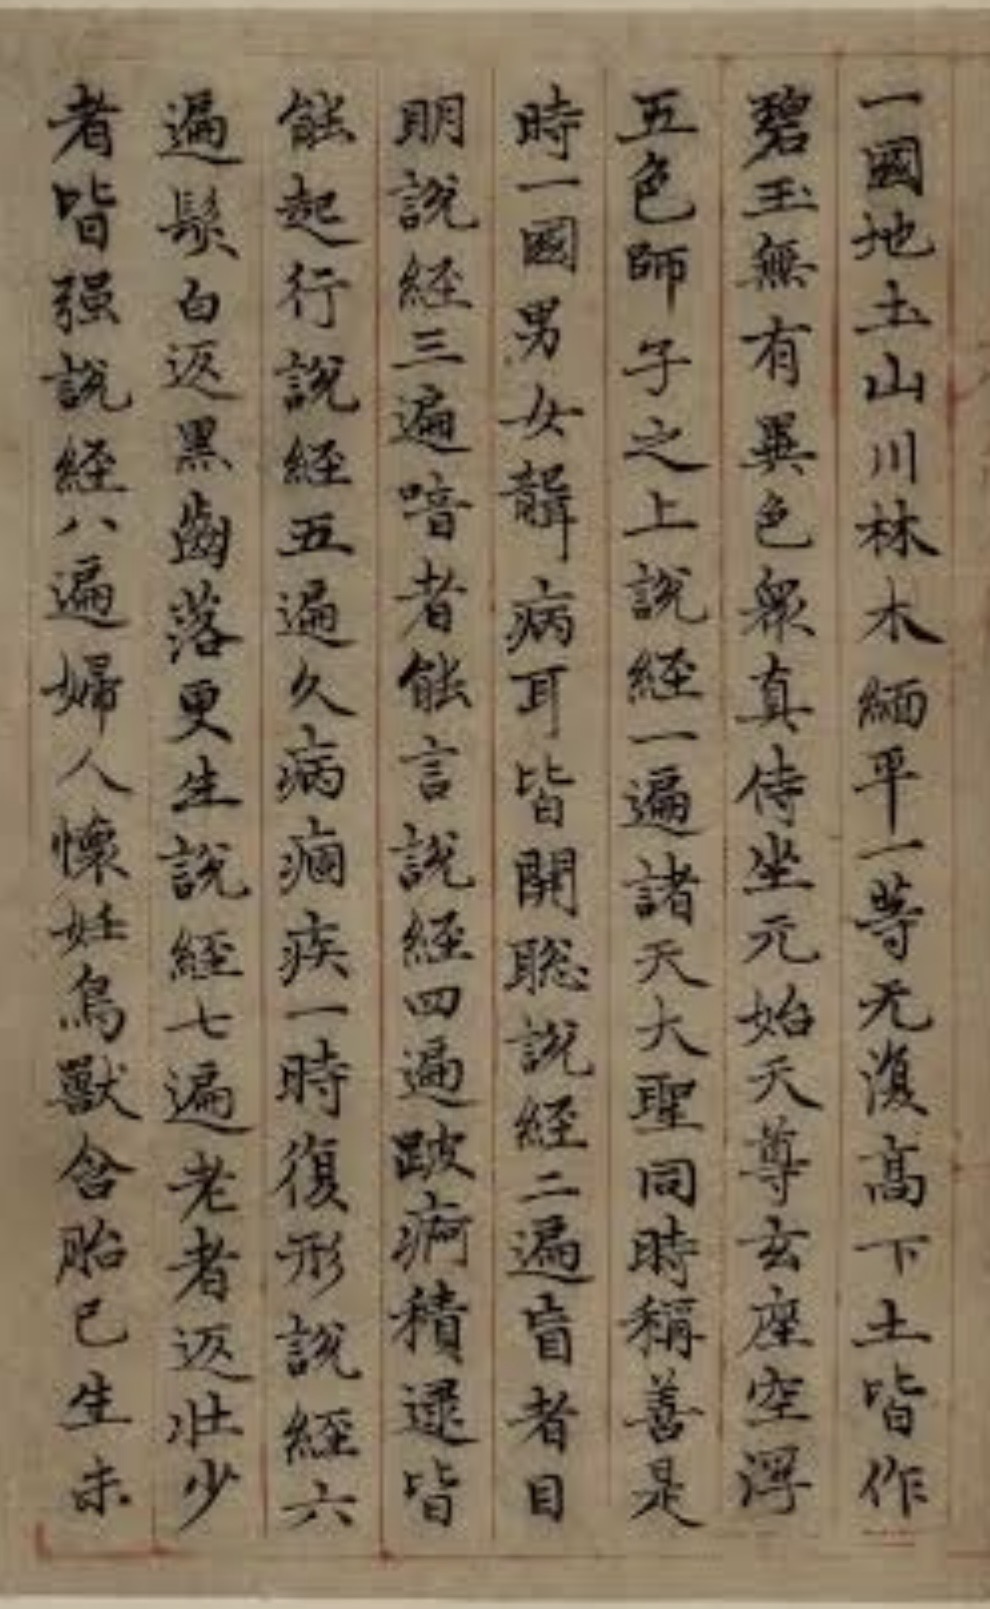 一國地土山川林木緬平一等无復高下土皆作
碧玉無有異色衆真侍坐元始天尊玄座空浮
五色師子之上說經一遍諸天大聖同時稱善是
時一國男女聾病耳皆開聡說經二遍盲者目
明說經三遍喑者能言說經四遍跛痾積逮皆
能起行說經五遍久病痼疾一時復形說經六
遍髮白返黑齒落更生說經七遍老者返壯少
者皆强說經八遍婦人懷妊鳥獸含胎已生未